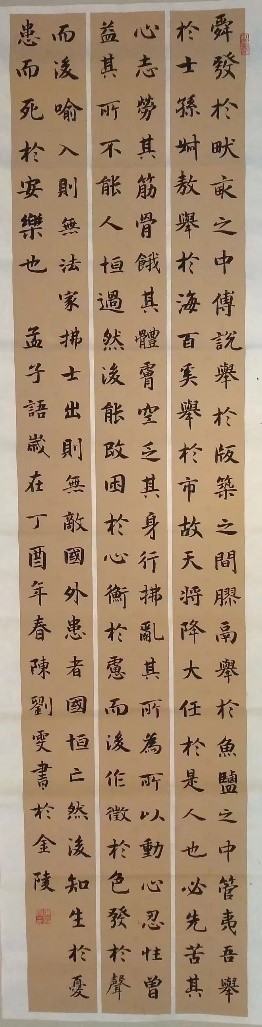 舜發於畎畝之中傅說舉於版築之間膠鬲舉於魚鹽之中管夷吾舉
於士孫叔敖舉於海百奚舉於市故天將降大任於是人也必先苦其
心志勞其筋骨餓其體膚空乏其身行拂亂其所為所以動心忍性曾
益其所不能人恒過然後能改困於心衡於慮而後作徵於色發於聲
而後喻入則無法家拂士出則無敵國外患者國恒亡然後知生於憂
患而死於安樂也 孟子語歲在丁酉年春陳劉雯書於金陵